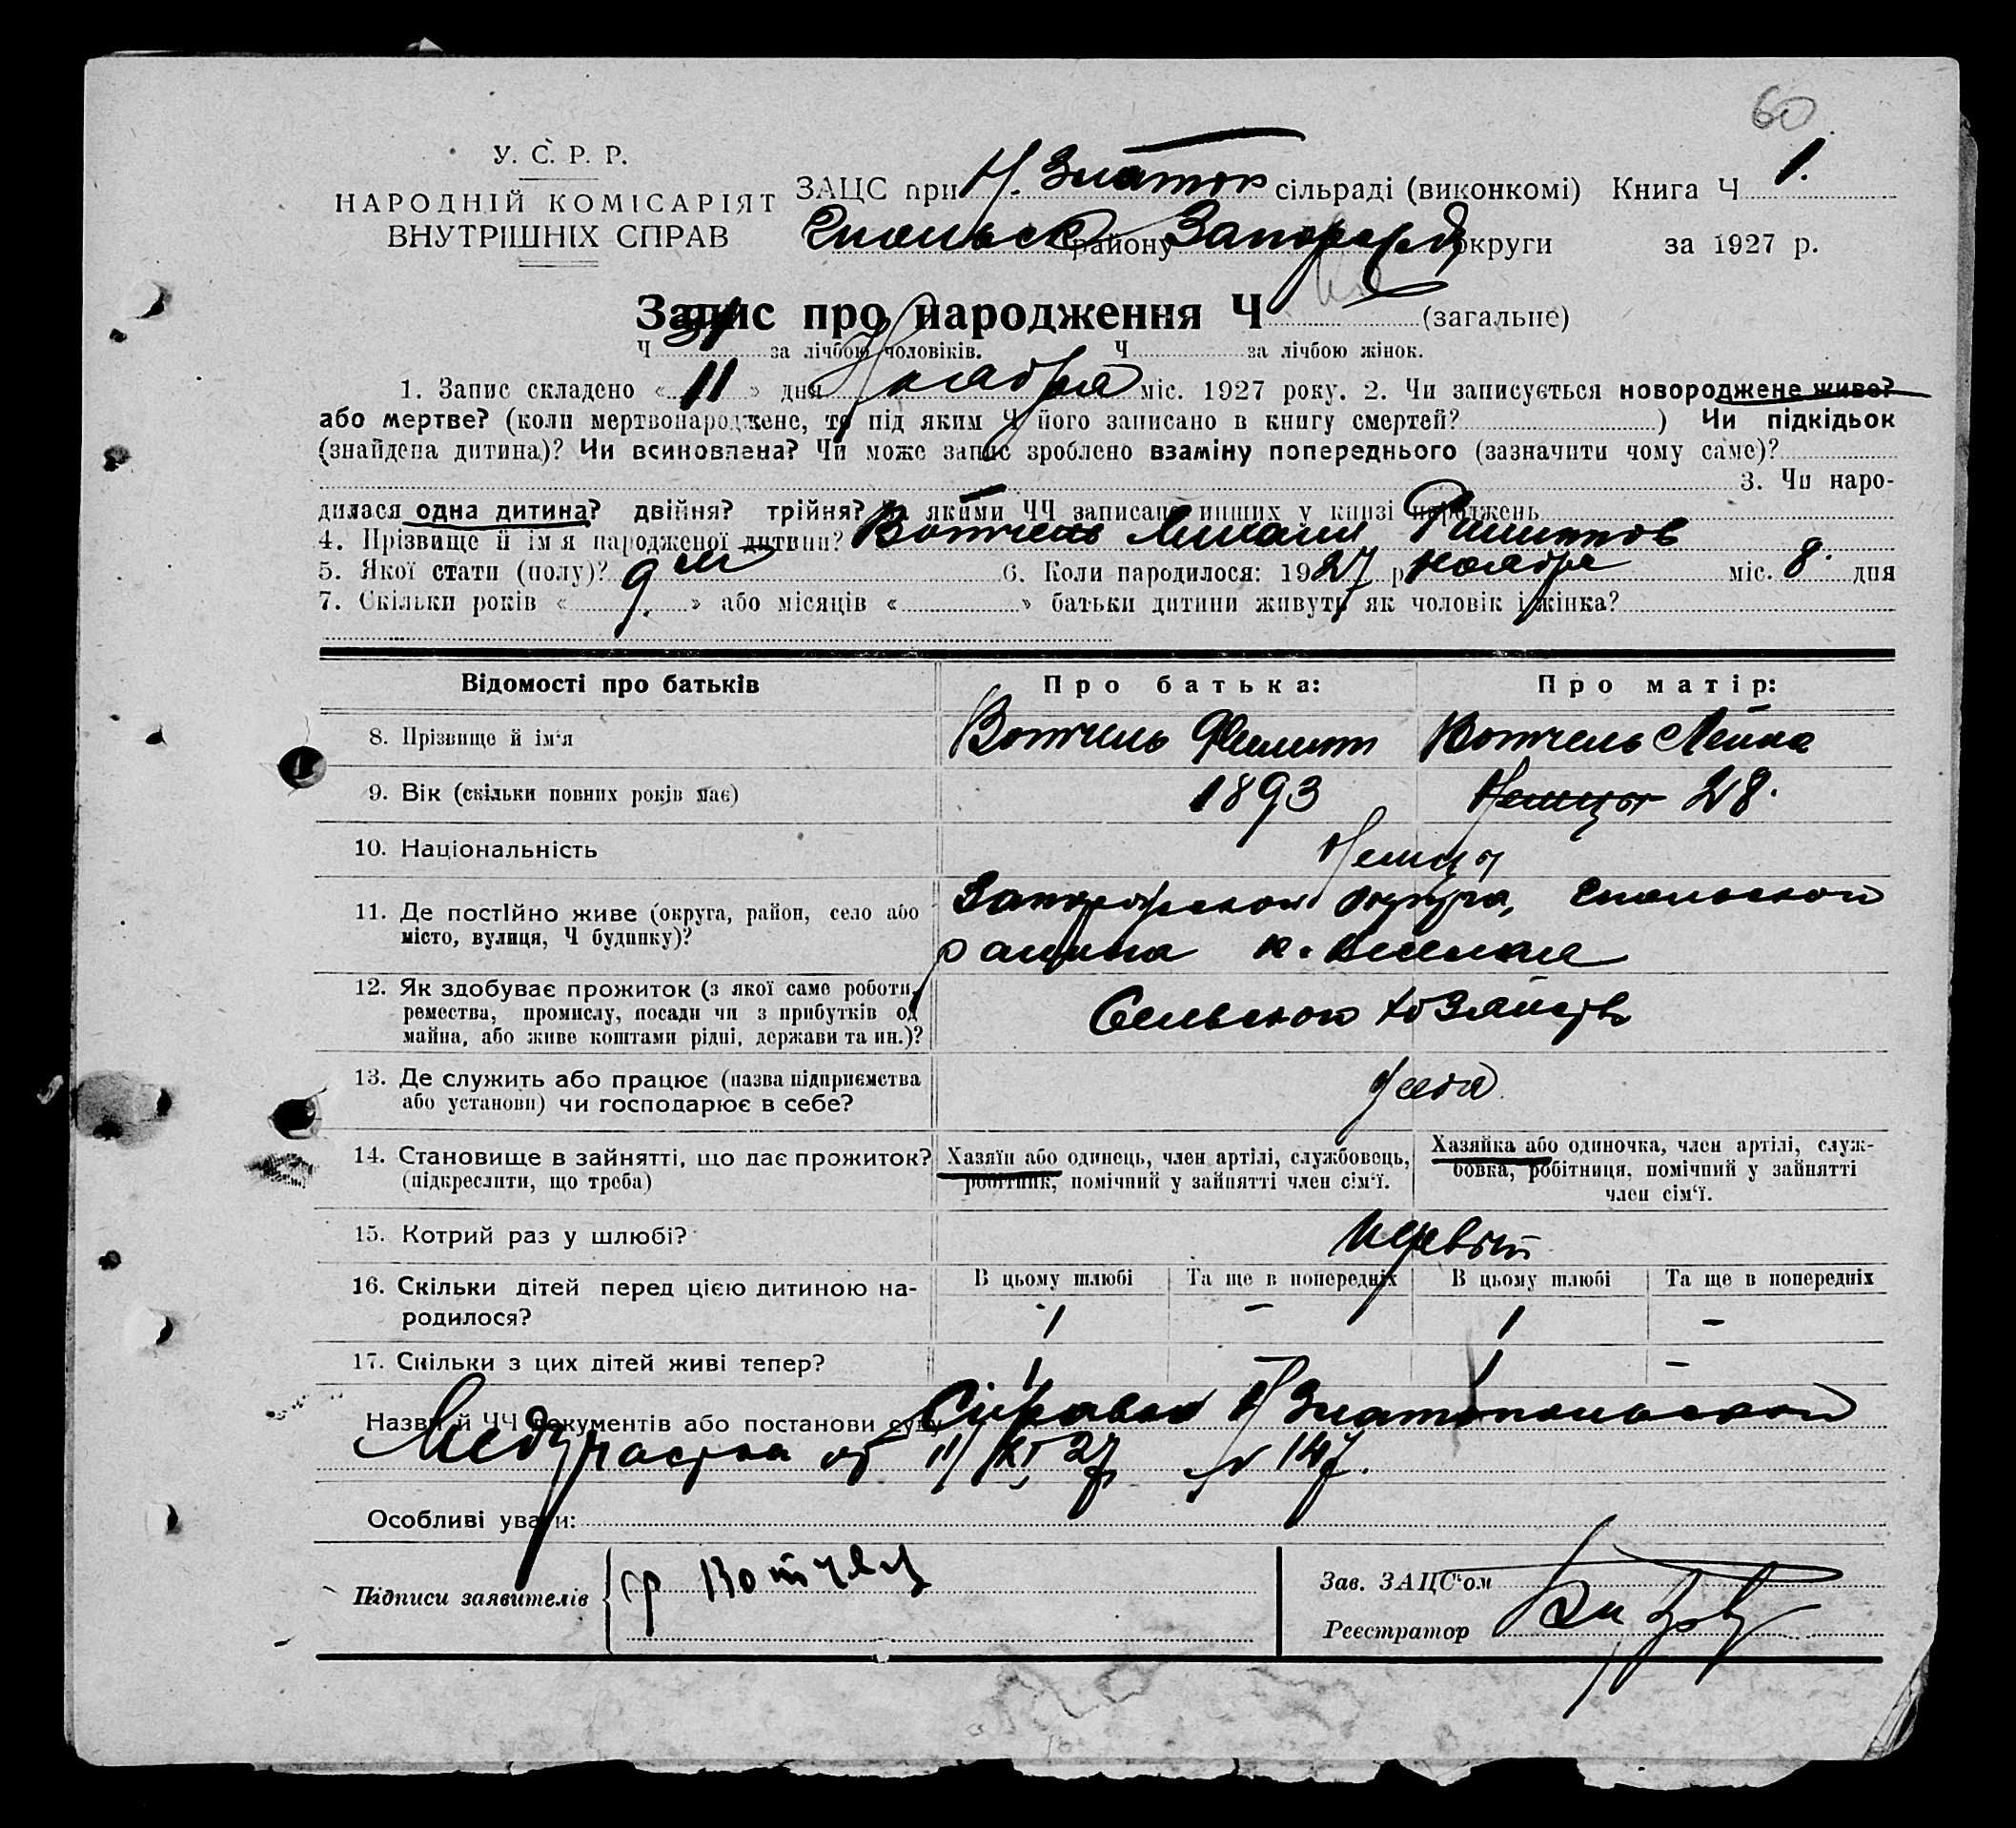 60
У. С. Р. Р.
НАРОДНІЙ КОМІСАРІЯТ
ВНУТРІШНІХ СПРАВ
ЗАЦС при Н. Златоп сільраді (виконкомі) Книга Ч 1.
району Запорожс округи за 1927 р.
Запис про народження Ч (загальне)
Ч за лічбою чоловіків. Ч за лічбою жінок.
1. Запис складено « 11 » дня Ноября міс. 1927 року. 2. Чи записується новороджене живе?
або мертве? (коли мертвонароджене, то під яким Ч його записано в книгу смертей? ) Чи підкідьок
(знайдена дитина)? Чи всиновлена? Чи може запис зроблено взаміну попереднього (зазначити чому саме)?
3. Чи наро-
дилася одна дитина? двійня? трійня? якими ЧЧ записано инших у книзі народжень
4. Прізвище й ім'я народженої дитини? Вотчель
5. Якої стати (полу)? м 6. Коли народилося: 1927 р Ноября міс. 8. дня
7. Скільки років « 9. » або місяців « » батьки дитини живуть як чоловік і жінка?
Відомості про батьків
Про батька:
Про матір:
8. Прізвище й ім'я Вотчель Филипп Вотчель
9. Вік (скільки повних років має) 1893 Немцы 28.
10. Національність Немцы
11. Де постійно живе (округа, район, село або
місто, вулиця, Ч будинку)?
Запорожской округа,
района к.
12. Як здобуває прожиток (з якої саме роботи,
ремества, промислу, посади чи з прибутків од
майна, або живе коштами рідні, держави та ин.)?
Сельского хозяйств
13. Де служить або працює (назва підприємства
або установи) чи господарює в себе?
У себя
14. Становище в зайнятті, що дає прожиток?
(підкреслити, що треба)
Хазяїн або одинець, член артілі, службовець,
робітник, помічний у зайнятті член сім'ї.
Хазяйка або одиночка, член артілі, служ-
бовка, робітниця, помічний у зайнятті
член сім'ї.
15. Котрий раз у шлюбі? первый
16. Скільки дітей перед цією дитиною на-
родилося?
В цьому шлюбі Та ще в попередніх В цьому шлюбі Та ще в попередніх
1 – 1 –
17. Скільки з цих дітей живі тепер? 1 1 –
Назви й ЧЧ документів або постанови суду Справка Н Златопольской
Медучастка от 11/XI 27 № 147.
Особливі уваги:
Підписи заявителів
гр Вотчель
Зав. ЗАЦС'ом
Реєстратор